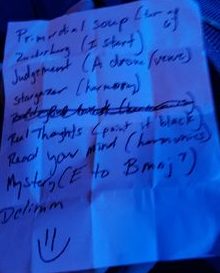 Primordial soup (turn up
Zuckerburg (I start)
Judgement (A drone/verse)
Stargazer (harmony)
Real Thoughts (paint it black)
Read your mind (harmonies)
Mystery (E to Bmaj7)
Delirium